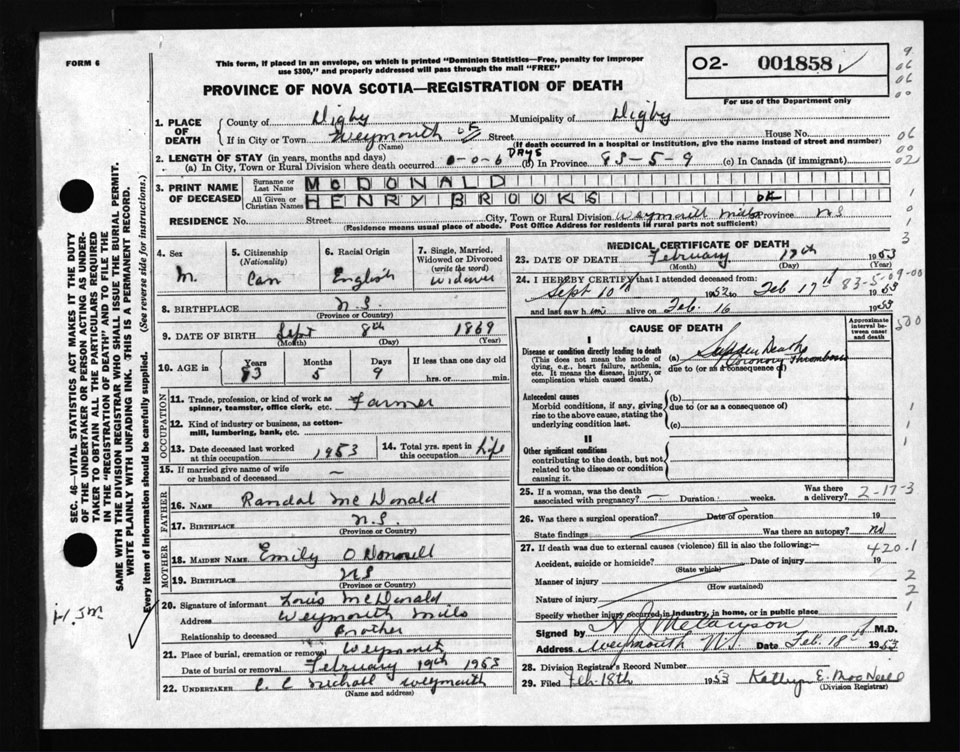 FORM 6
This form, if placed in an envelope, on which is printed "Dominion Statistics—Free, penalty for improper
use $300," and properly addressed will pass through the mail "FREE"
O2- 001858 ✓
PROVINCE OF NOVA SCOTIA—REGISTRATION OF DEATH
For use of the Department only
1. PLACE OF DEATH
County of Digby Municipality of Digby
If in City or Town Weymouth Street House No.
(Name) (If death occurred in a hospital or institution, give the name instead of street and number)
2. LENGTH OF STAY (in years, months and days)
(a) In City, Town or Rural Division where death occurred 0-0-6 DAYS (b) In Province 83-5-9 (c) In Canada (if immigrant)
3. PRINT NAME OF DECEASED
Surname or Last Name MCDONALD
All Given or Christian Names HENRY BROOKS
RESIDENCE No. Street City, Town or Rural Division Weymouth Mills Province NS
(Residence means usual place of abode. Post Office Address for residents in rural parts not sufficient)
4. Sex M.
5. Citizenship (Nationality) Can
6. Racial Origin English
7. Single, Married, Widowed or Divorced (write the word) Widower
8. BIRTHPLACE N.S.
(Province or Country)
9. DATE OF BIRTH Sept 8th 1869
(Month) (Day) (Year)
10. AGE in Years 83 Months 5 Days 9 If less than one day old hrs. or min.
OCCUPATION
11. Trade, profession, or kind of work as
spinner, teamster, office clerk, etc. Farmer
12. Kind of industry or business, as cotton-
mill, lumbering, bank, etc.
13. Date deceased last worked at this occupation 1953
14. Total yrs. spent in this occupation Life
15. If married give name of wife
or husband of deceased —
FATHER
16. NAME Randal McDonald
17. BIRTHPLACE N.S.
(Province or Country)
MOTHER
18. MAIDEN NAME Emily
19. BIRTHPLACE NS
(Province or Country)
20. Signature of informant Louis McDonald
Address Weymouth Mills
Relationship to deceased Brother
21. Place of burial, cremation or removal Weymouth
Date of burial or removal February 19th 1953
22. UNDERTAKER Weymouth
(Name and address)
MEDICAL CERTIFICATE OF DEATH
23. DATE OF DEATH February 17th 1953
(Month) (Day)
24. I HEREBY CERTIFY that I attended deceased from:
Sept 10th 1952 to Feb 17th 1953
and last saw him alive on Feb. 16 1953
83-5-09-00
CAUSE OF DEATH
Approximate interval between onset and death
I
Disease or condition directly leading to death
(This does not mean the mode of
dying, e.g., heart failure, asthenia,
etc. It means the disease, injury, or
complication which caused death.)
(a) Sudden Death Coronary Thrombosis
due to (or as a consequence of)
Antecedent causes
Morbid conditions, if any, giving
rise to the above cause, stating the
underlying condition last.
(b)
due to (or as a consequence of)
(c)
II
Other significant conditions
contributing to the death, but not
related to the disease or condition
causing it.
25. If a woman, was the death
associated with pregnancy? — Duration weeks. Was there a delivery? 2-17-3
26. Was there a surgical operation? Date of operation 19
State findings Was there an autopsy? No
27. If death was due to external causes (violence) fill in also the following:— 420.1
Accident, suicide or homicide? Date of injury 19
(State which)
Manner of injury
(How sustained)
Nature of injury
Specify whether injury occurred in industry, in home, or in public place
Signed by M.D.
Address Weymouth N.S. Date Feb. 18th 1953
28. Division Registrar's Record Number
29. Filed Feb. 18th 1953 Kathryn E. MacNeill
(Division Registrar)
SEC. 46—VITAL STATISTICS ACT MAKES IT THE DUTY
OF THE UNDERTAKER OR PERSON ACTING AS UNDER-
TAKER TO OBTAIN ALL THE PARTICULARS REQUIRED
IN THE "REGISTRATION OF DEATH" AND TO FILE THE
SAME WITH THE DIVISION REGISTRAR WHO SHALL ISSUE THE BURIAL PERMIT.
WRITE PLAINLY WITH UNFADING INK. THIS IS A PERMANENT RECORD.
Every item of information should be carefully supplied. (See reverse side for instructions.)